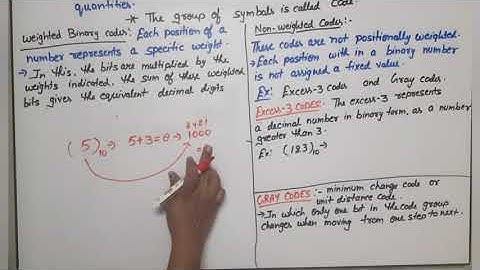 quantities.
* The group of symbols is called Code.
Weighted Binary codes: Each position of a
number represents a specific weight.
→ In this, the bits are multiplied by the
weights indicated, the sum of these weighted
bits gives the equivalent decimal digits
8 4 2 1
(5)10 → 5+3=8 → 1000
Non-Weighted Codes:-
These codes are not positionally weighted.
→ Each position with in a binary number
is not assigned a fixed value.
Ex: Excess-3 codes and Gray codes.
EXCESS-3 CODES: The excess-3 represents
a decimal number in binary form, as a number
greater than 3.
Ex: (123)10 →
GRAY CODES :- minimum change code or
unit distance code.
→ In which only one bit in the code group
changes when moving from one step to next.